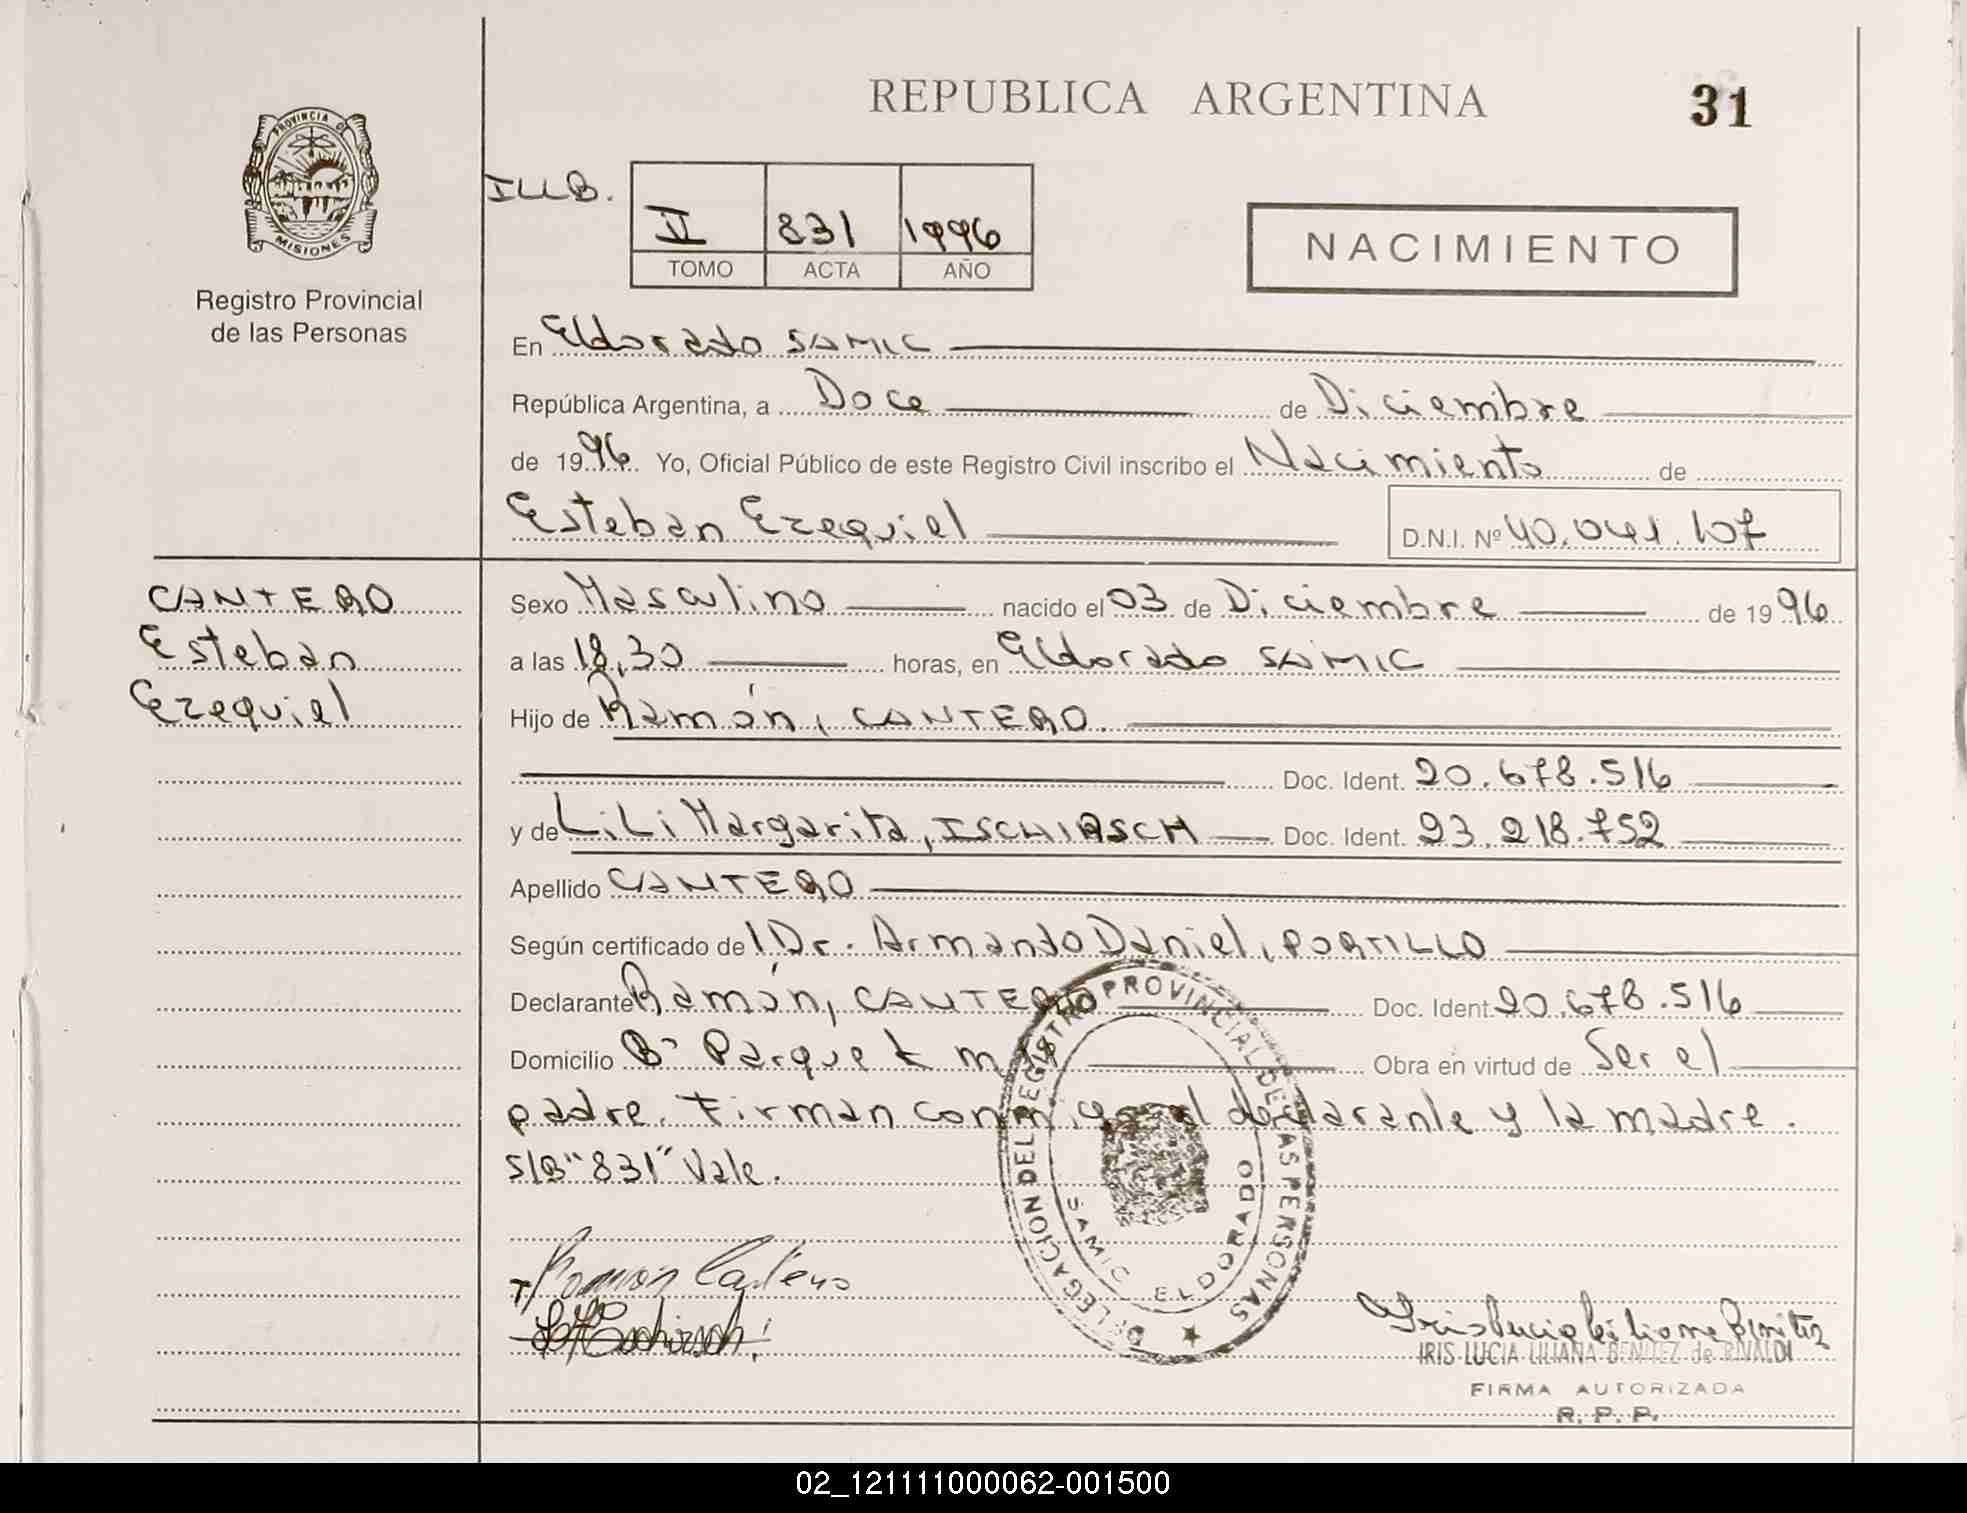 REPUBLICA ARGENTINA
31
PROVINCIA DE
MISIONES
Registro Provincial
de las Personas
II 831 1996
TOMO ACTA AÑO
NACIMIENTO
En Eldorado SAMIC
República Argentina, a Doce de Diciembre
de 1996 Yo, Oficial Público de este Registro Civil inscribo el Nacimiento de
Esteban Ezequiel D.N.I. Nº 40.041.107
CANTERO
Esteban
Ezequiel
Sexo Masculino nacido el 03 de Diciembre de 1996
a las 18,30 horas, en Eldorado SAMIC
Hijo de Ramón, CANTERO.
Doc. Ident. 20.678.516
y de LiLi Margarita, ISCHIRSCH Doc. Ident. 23.218.752
Apellido CANTERO
Según certificado del Dr. Armando Daniel, PORTILLO
Declarante Ramón, CANTERO Doc. Ident. 20.678.516
Domicilio Bº Parque k m Obra en virtud de Ser el
padre. Firman conmigo el declarante y la madre.
S/B "831" Vale.
DELEGACION DEL REGISTRO PROVINCIAL DE LAS PERSONAS
SAMIC ELDORADO
Ramon Cantero
Iris Lucia Liliana Benitez
IRIS LUCIA LILIANA BENITEZ de RIVALDI
FIRMA AUTORIZADA
R. P. P.
02_121111000062-001500